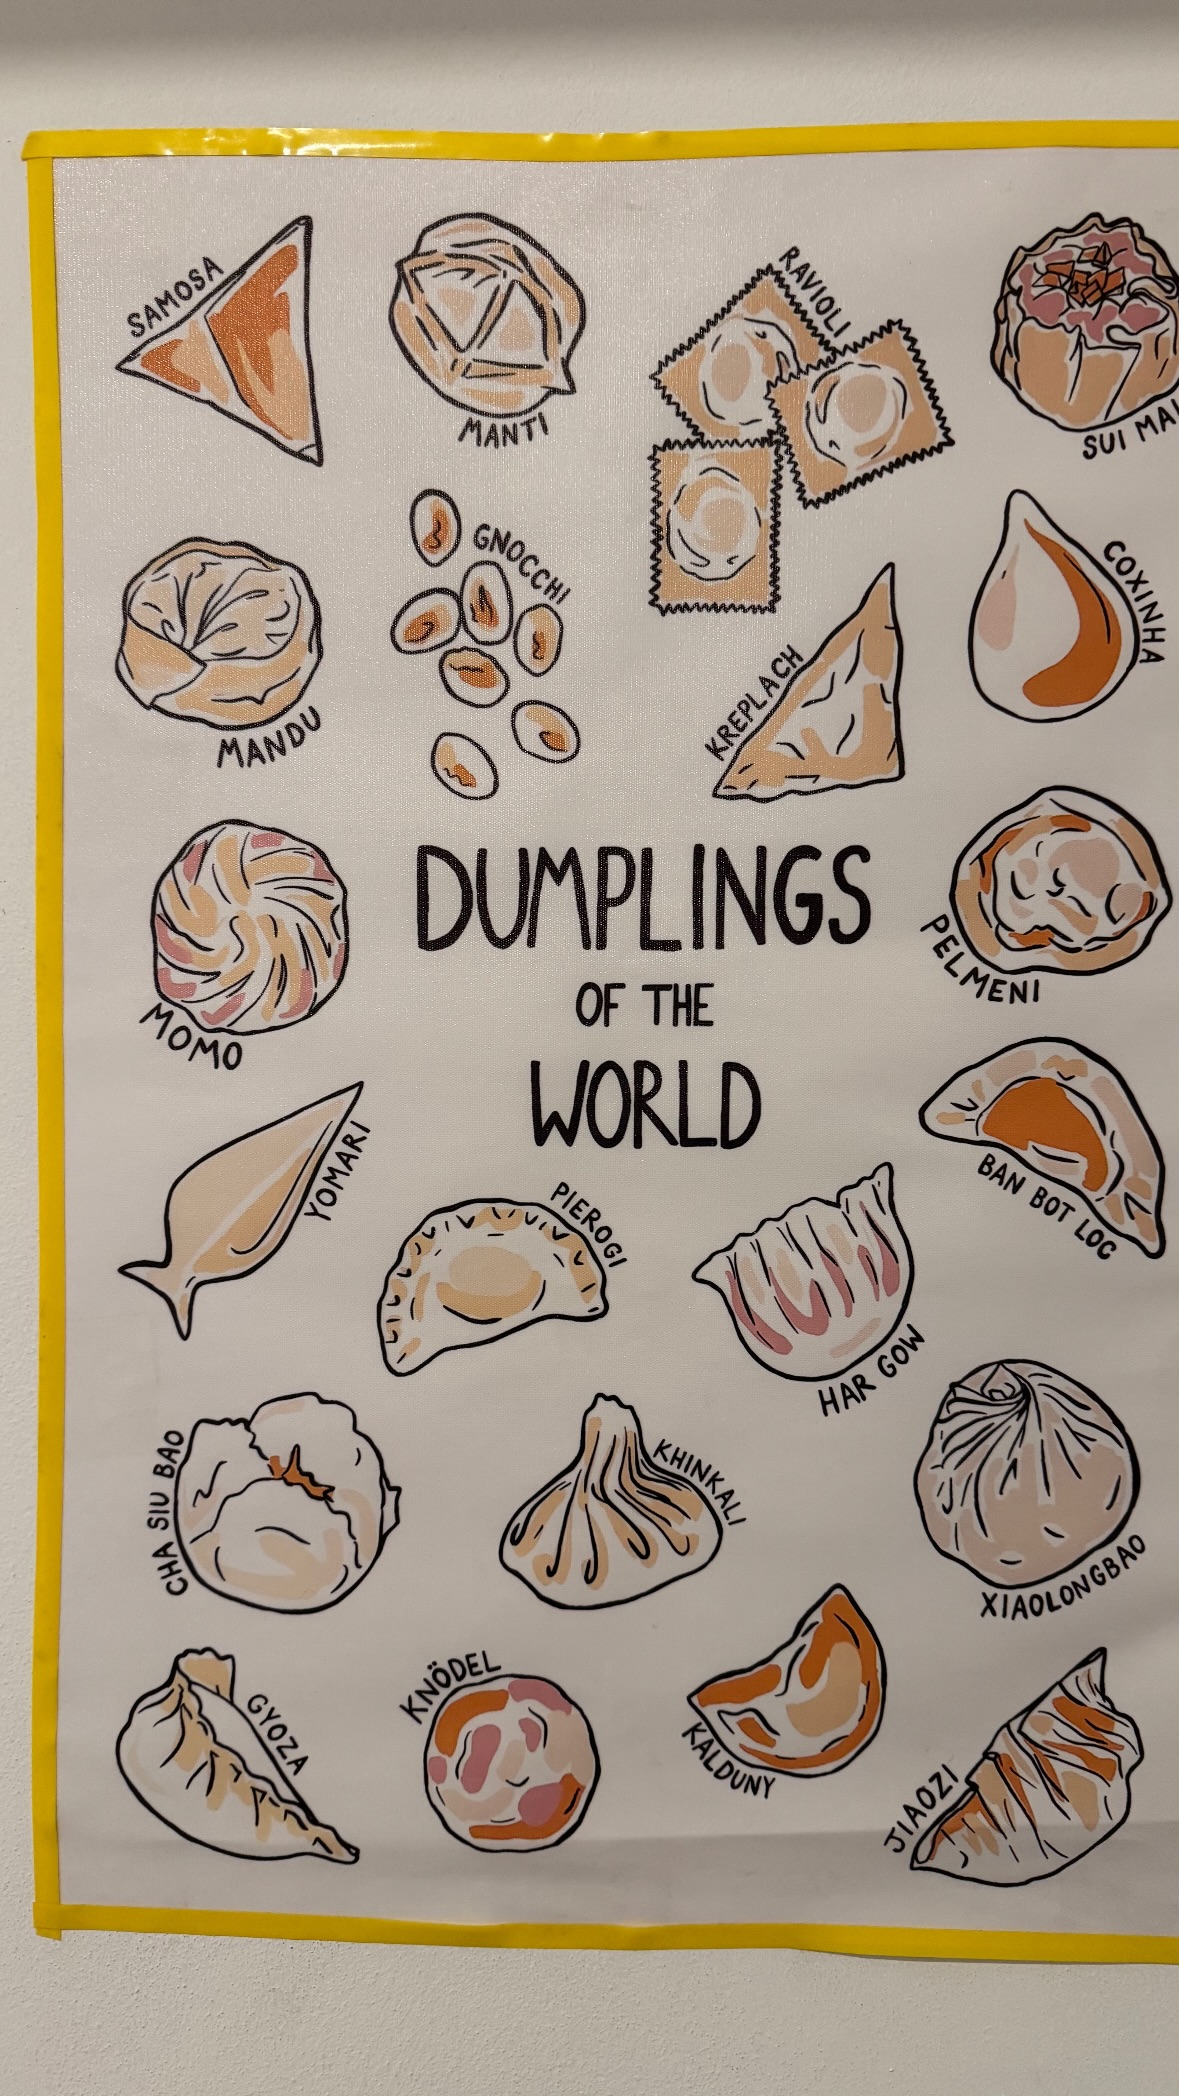 SAMOSA
MANTI
RAVIOLI
SUI MAI
MANDU
GNOCCHI
KREPLACH
COXINHA
MOMO
DUMPLINGS
OF THE
WORLD
PELMENI
YOMARI
PIEROGI
HAR GOW
BAN BOT LOC
CHA SIU BAO
KHINKALI
XIAOLONGBAO
GYOZA
KNÖDEL
KALDUNY
JIAOZI